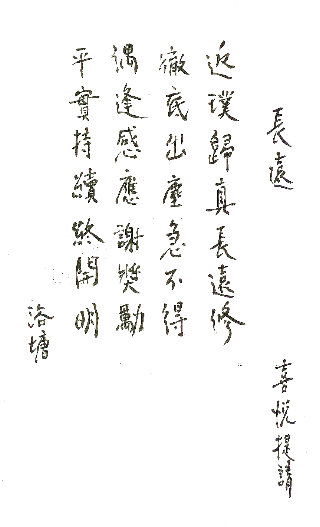 長遠
喜悅提請
返璞歸真長遠修
徹底出塵急不得
偶逢感應謝獎勵
平實持續終開明
洛塘